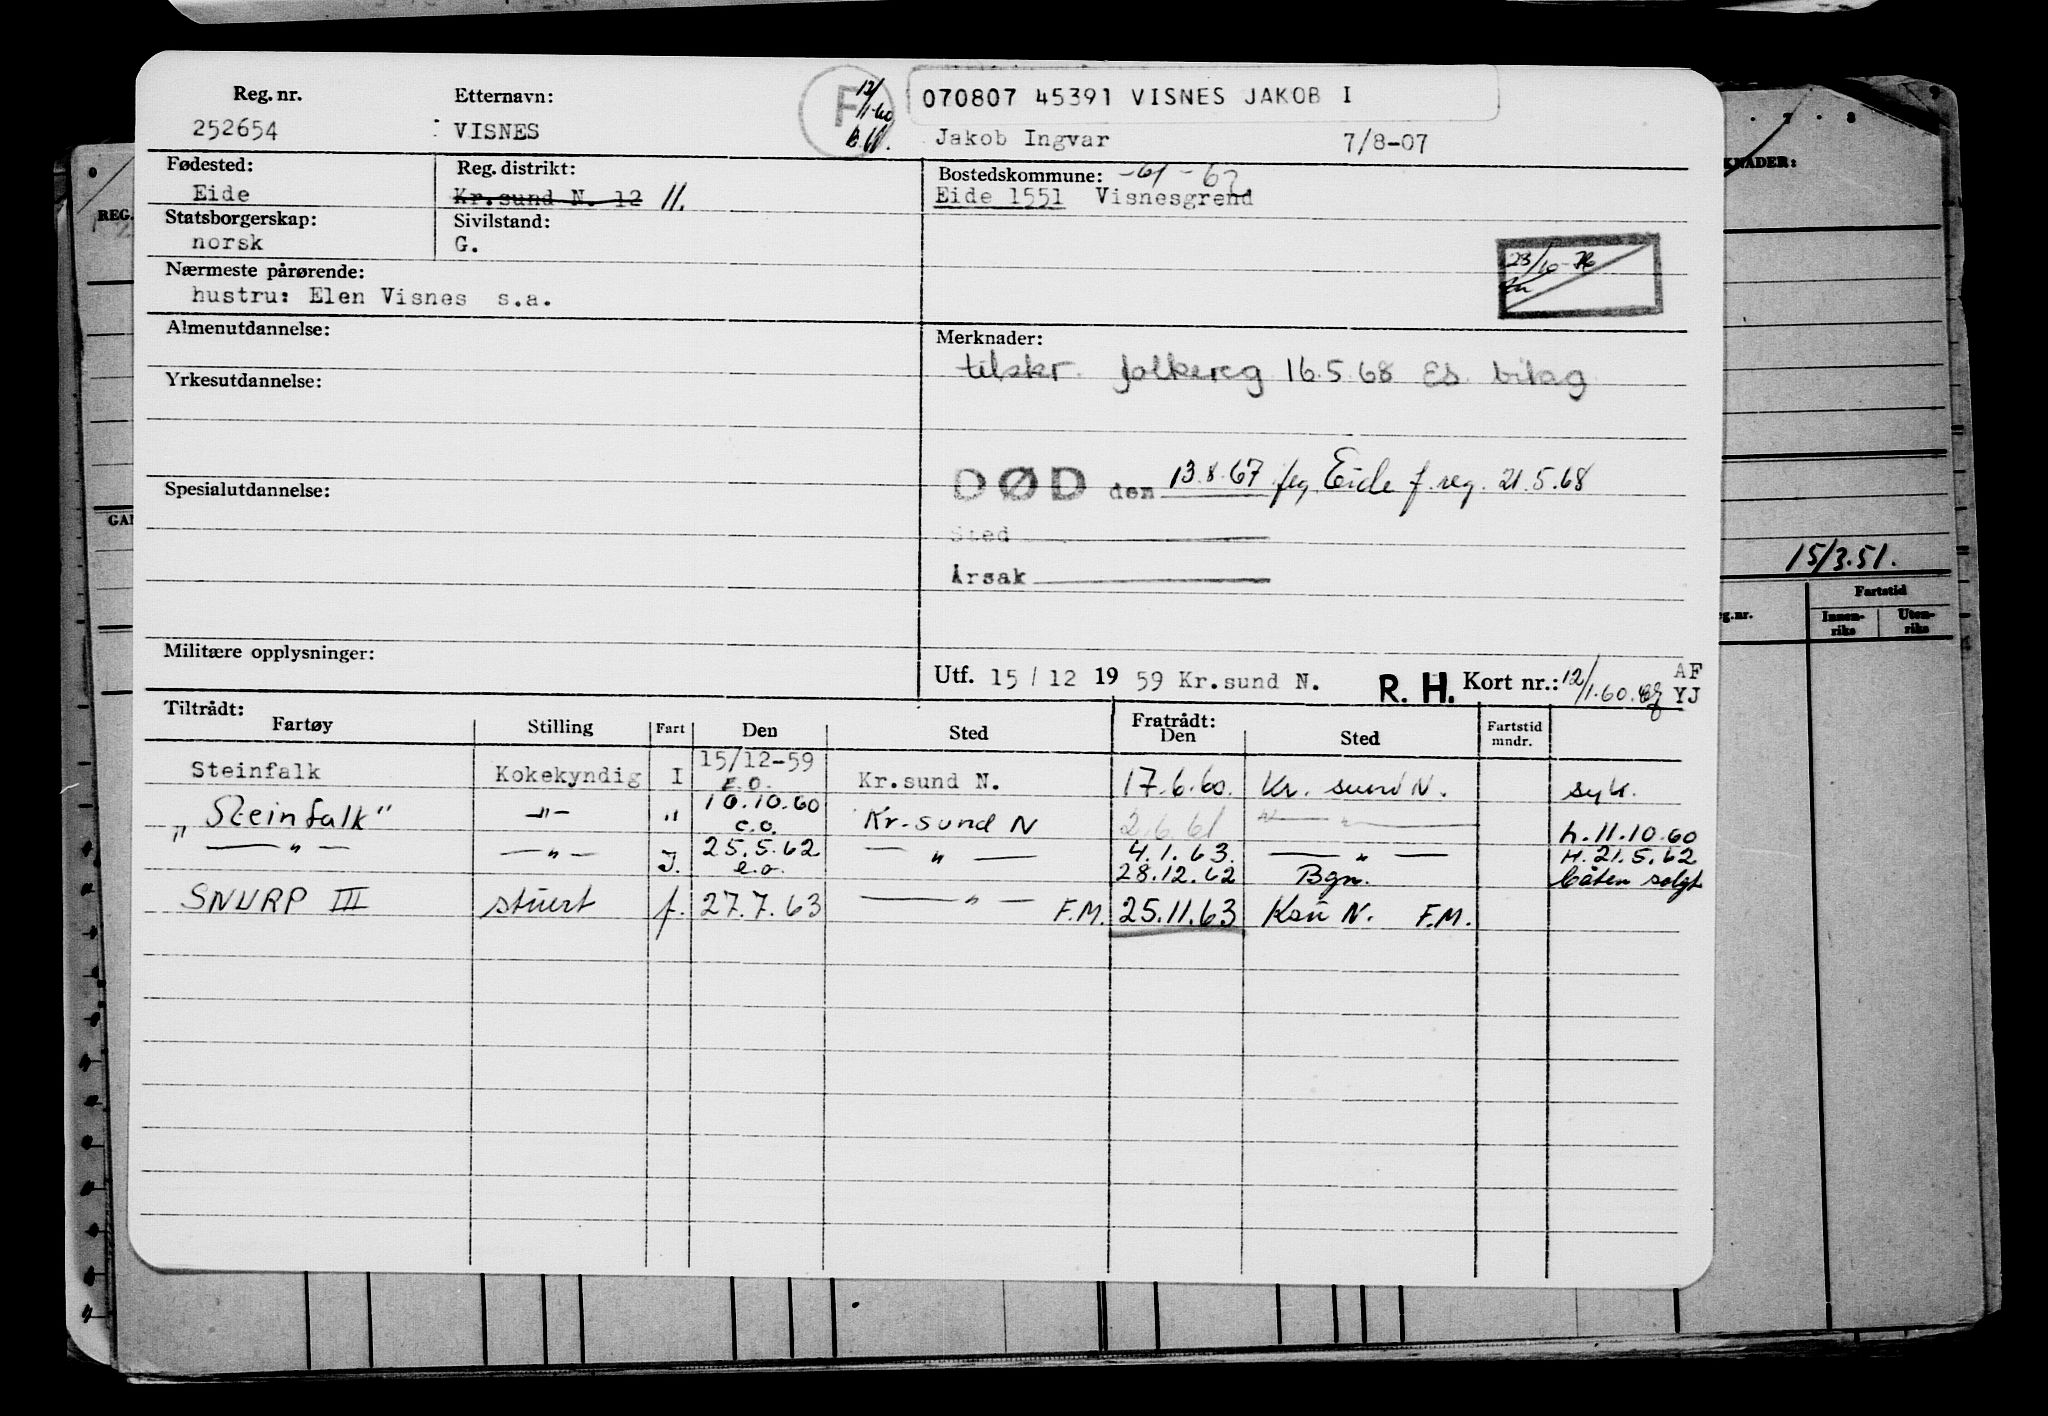 Reg. nr. Etternavn: F 12/1-60 070807 45391 VISNES JAKOB I
252654 VISNES Jakob Ingvar 7/8-07
Fødested: Reg. distrikt: Bostedskommune: -61-62
Eide Kr.sund N. 12 11. Eide 1551 Visnesgrend
Statsborgerskap: Sivilstand:
norsk G.
23/10-76
Nærmeste pårørende:
hustru: Elen Visnes s.a.
Almenutdannelse: Merknader:
tilskr. folkereg 16.5.68 ES bilag
Yrkesutdannelse:
DØD den 13.8.67 Eide f.reg. 21.5.68
Spesialutdannelse:
Sted
Årsak
Militære opplysninger:
Utf. 15/12 1959 Kr.sund N. R. H. Kort nr.: 12/1.60. AF
YJ
Tiltrådt: Fratrådt:
Fartøy Stilling Fart Den Sted Den Sted Fartstid mndr.
Steinfalk Kokekyndig I 15/12-59 E.O. Kr.sund N. 17.6.60. Kr. sund N. syk.
"Steinfalk" -"- " 10.10.60 e.o. Kr.sund N 2.6.61 -"- h. 11.10.60
" -"- -"- I. 25.5.62 e.o. -"- 4.1.63. -"- H. 21.5.62
28.12.62 Bgn. båten solgt
SNURP III stuert f. 27.7.63 -"- F.M. 25.11.63 Ksu N. F.M.
KNADER:
REG.
GAN
15/3.51.
g.nr. Fartstid
Innen-riks Uten-riks
7 8